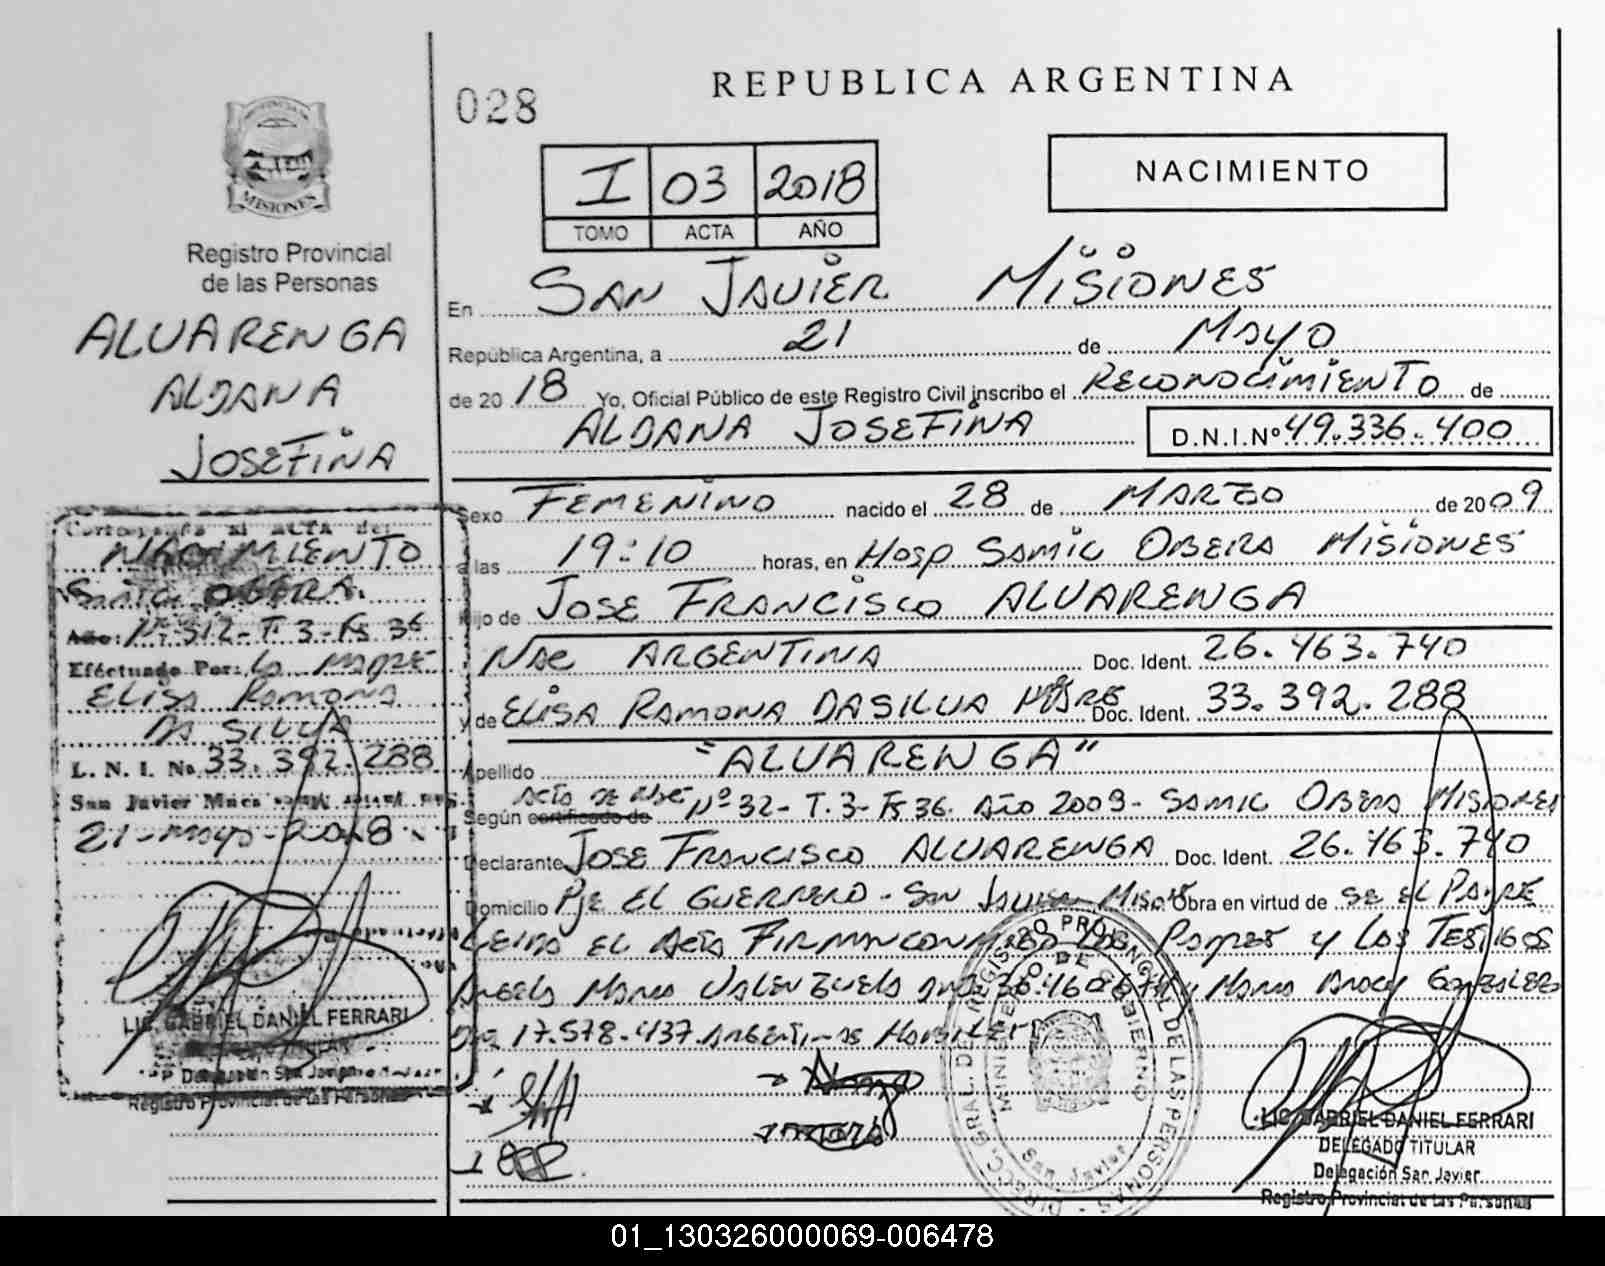 028
REPUBLICA ARGENTINA
NACIMIENTO
I 03 2018
TOMO ACTA AÑO
PROVINCIA DE
MISIONES
Registro Provincial
de las Personas
ALVARENGA
ALDANA
JOSEFINA
En SAN JAVIER MISIONES
República Argentina, a 21 de MAYO
de 2018 Yo, Oficial Público de este Registro Civil inscribo el RECONOCIMIENTO de
ALDANA JOSEFINA D.N.I.Nº 49.336.400
Sexo FEMENINO nacido el 28 de MARZO de 2009
a las 19:10 horas, en Hosp SAMIC OBERA MISIONES
Hijo de JOSE FRANCISCO ALVARENGA
Nac ARGENTINA Doc. Ident. 26.463.740
y de ELISA RAMONA DASILVA MADRE Doc. Ident. 33.392.288
Apellido "ALVARENGA"
Según certificado de Acta de Nac Nº 32- T. 3- Fs 36. Año 2009- SAMIC OBERA MISIONES
Declarante JOSE FRANCISCO ALVARENGA Doc. Ident. 26.463.740
Domicilio Pje EL GUERRERO - San Javier Mis. Obra en virtud de SE EL PADRE
Leida EL Acta FIRMAN CONMIGO LOS Padres y Los TESTIGOS
Angela Maria VALENZUELA 36.460.674 y Maria GONZALEZ
17.578.437 ARGENTINAS
Corresponde al ACTA de:
NACIMIENTO
SAMIC OBERA
Año: Nº 312- T. 3- Fs 36
Efectuado Por: La MADRE
ELISA RAMONA
DA SILVA
L. N. I. No 33.392.288
San Javier Mnes
21-mayo-2018
LIC. GABRIEL DANIEL FERRARI
Delegación San Javier
Registro Provincial de las Personas
DIRECC. GRAL. DEL REGISTRO PROVINCIAL DE LAS PERSONAS
MINISTERIO DE GOBIERNO
San Javier
LIC. GABRIEL DANIEL FERRARI
DELEGADO TITULAR
Delegación San Javier
Registro Provincial de las Personas
01_130326000069-006478